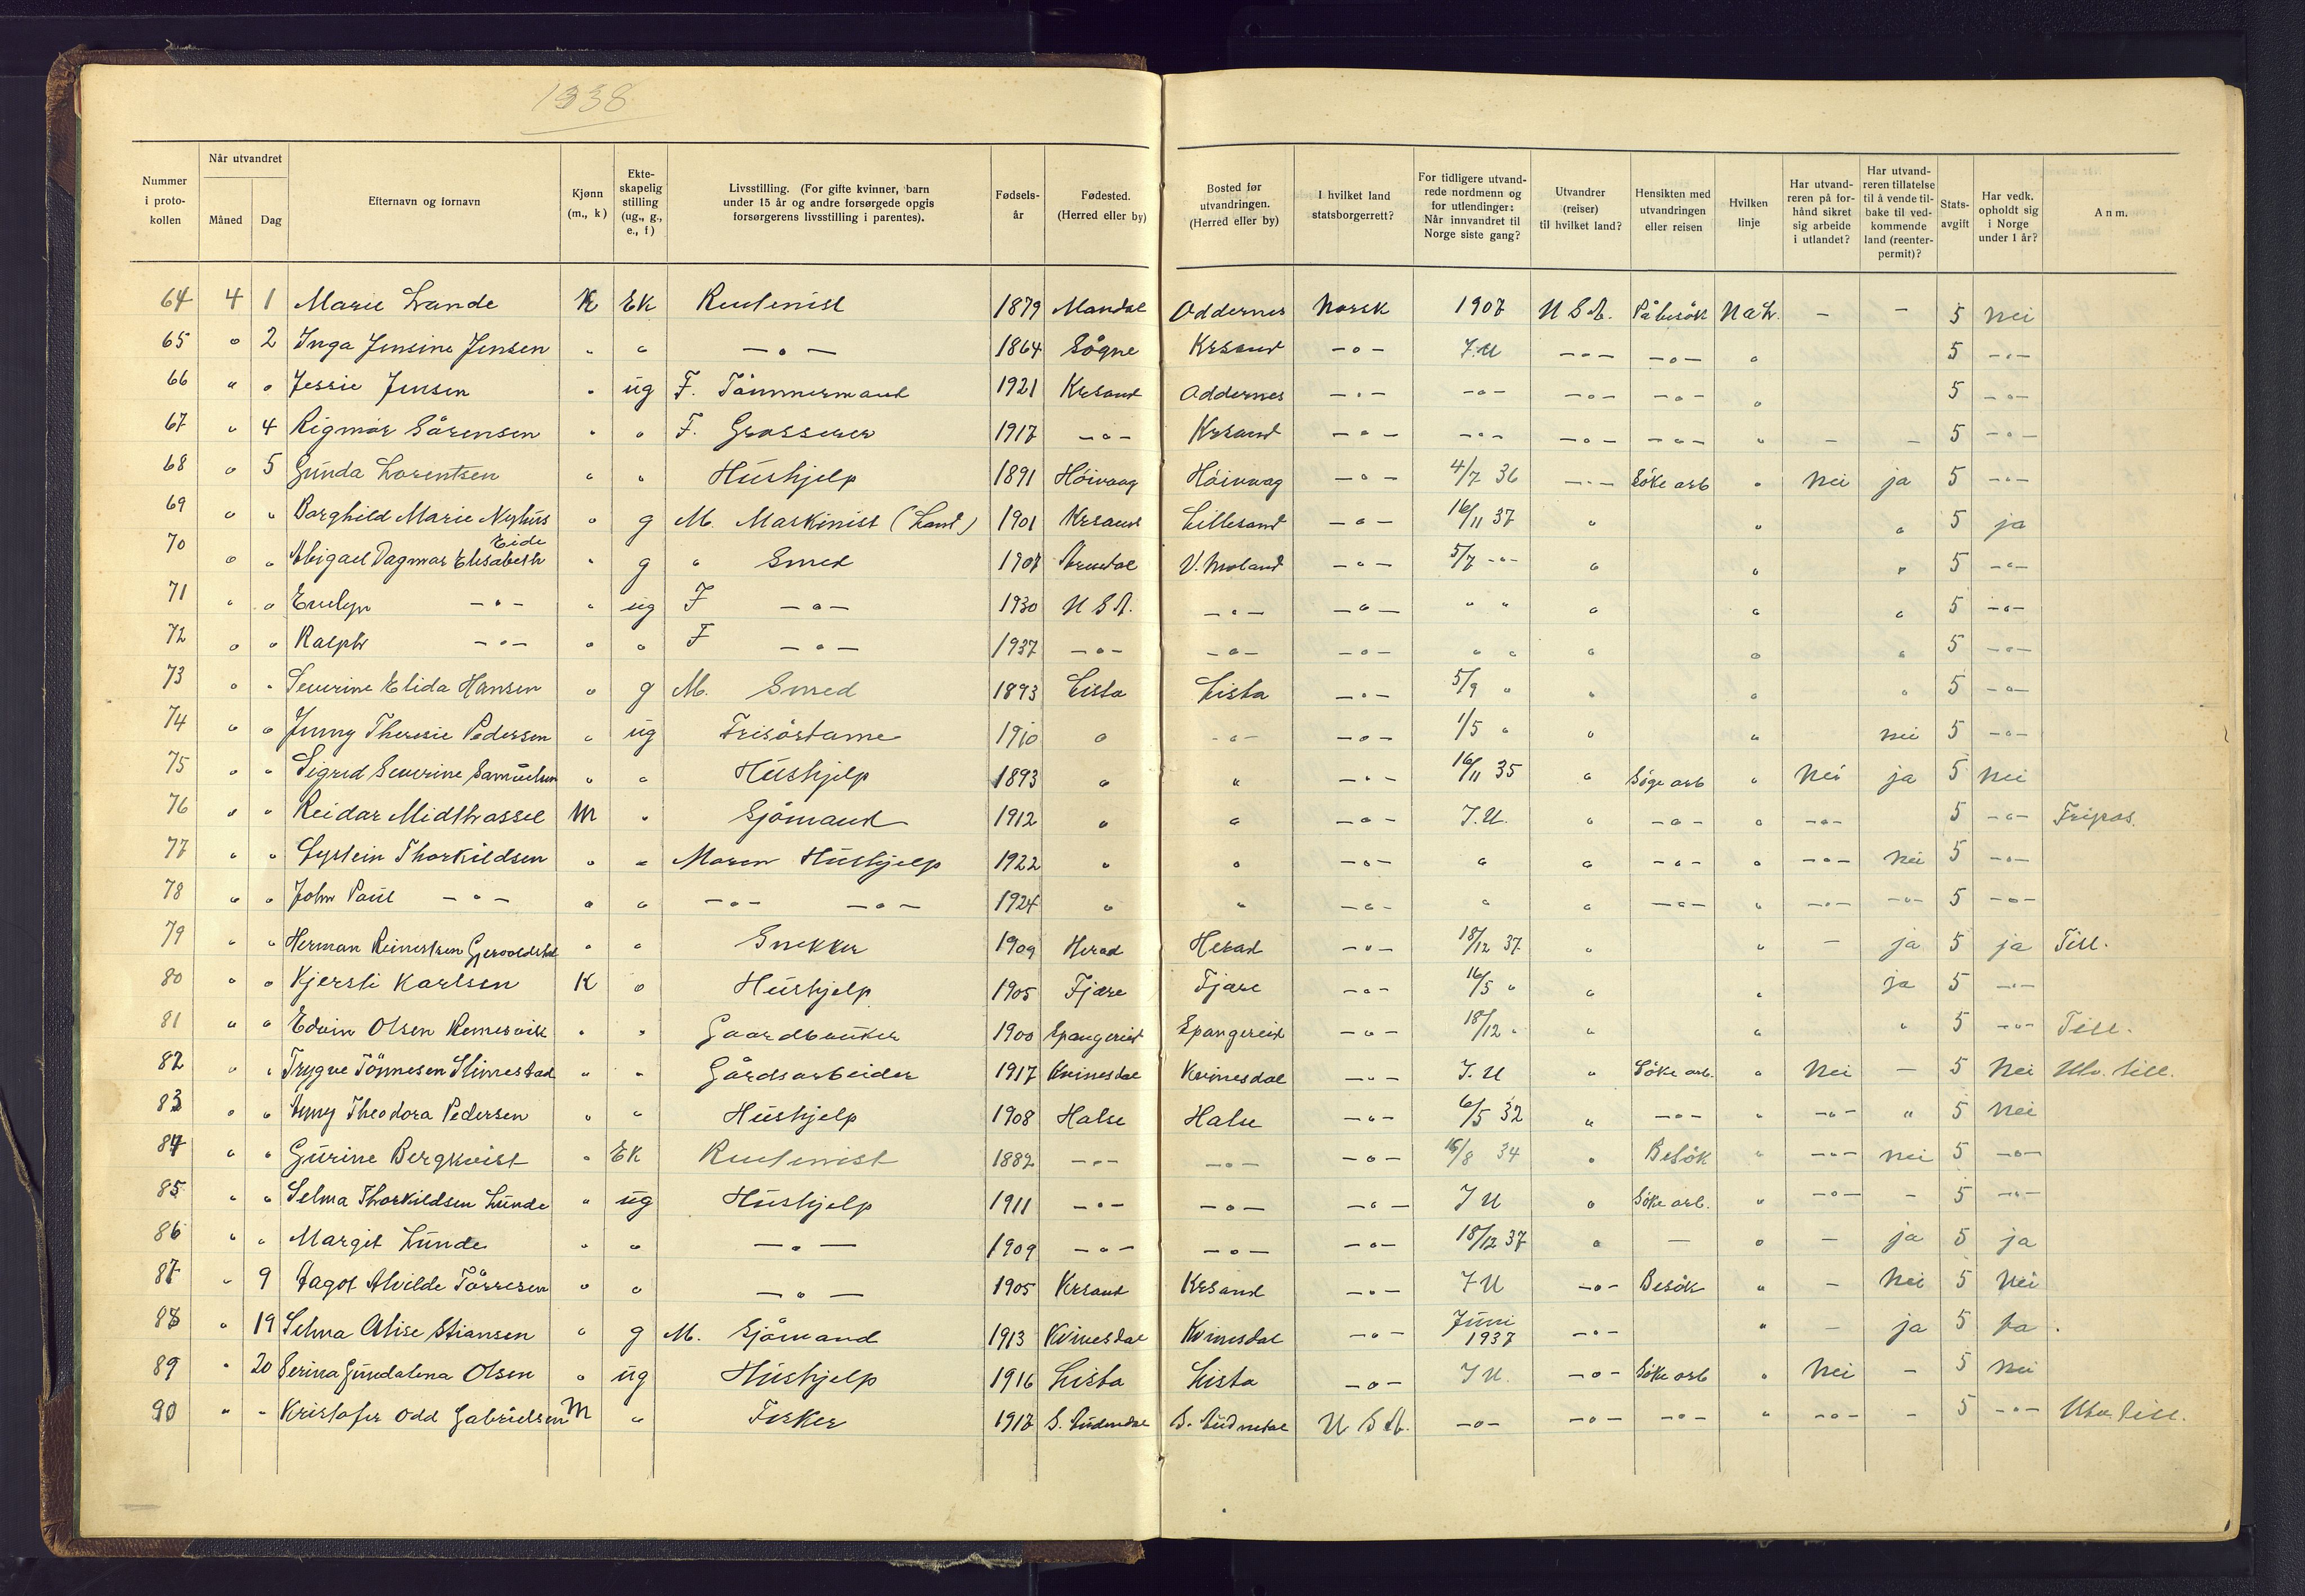 1938
Nummer i proto- kollen | Når utvandret Måned Dag | Efternavn og fornavn | Kjønn (m., k) | Ekte- skapelig stilling (ug., g., e., f) | Livsstilling. (For gifte kvinner, barn under 15 år og andre forsørgede opgis forsørgerens livsstilling i parentes). | Fødsels- år | Fødested. (Herred eller by) | Bosted før utvandringen. (Herred eller by) | I hvilket land statsborgerrett? | For tidligere utvand- rede nordmenn og for utlendinger: Når innvandret til Norge siste gang? | Utvandrer (reiser) til hvilket land? | Hensikten med utvandringen eller reisen | Hvilken linje | Har utvand- reren på for- hånd sikret sig arbeide i utlandet? | Har utvand- reren tillatelse til å vende til- bake til ved- kommende land (reenter- permit)? | Stats- avgift | Har vedk. opholdt sig i Norge under 1 år? | Anm.
64 4 1 Marie Lande K Ek Rentenist 1879 Mandal Oddernes Norsk 1907 U S A. På besök N a L. - - 5 nei
65 " 2 Inga Jensine Jensen " " -"- 1864 Sögne Krsand -"- I.U -"- -"- " 5 -"-
66 " " Jessie Jensen " ug F. Tömmermand 1921 Krsand Oddernes -"- -"- -"- -"- " 5 -"-
67 " 4 Rigmor Sörensen " " F. Grosserer 1917 -"- Krsand -"- -"- -"- -"- " - - 5 -"-
68 " 5 Gunda Lorentsen " " Hushjelp 1891 Höivaag Höivaag -"- 4/7 36 -"- Söke arb " Nei ja 5 -"-
69 " " Borghild Marie Nyhus " g M. Maskinist (Land) 1901 Krsand Lillesand -"- 16/11 37 " " " 5 ja
70 " " Abigael Dagmar Elisabeth Eide " g " Smed 1907 Arendal V. Moland -"- 5/7 -"- " " " 5 -"-
71 " " Evelyn -"- " ug F -"- 1930 U S A. -"- -"- " " " " " 5 -"-
72 " " Ralph -"- " " F -"- 1937 -"- -"- -"- " " " " " 5 -"-
73 " " Severine Elida Hansen " g M. Smed 1893 Lista Lista -"- 5/9 " " " " 5 -"-
74 " " Jenny Theresie Pedersen " ug Frisördame 1910 " -"- -"- 1/5 " " " nei 5 -"-
75 " " Sigrid Severine Samuelsen " " Hushjelp 1893 " " -"- 16/11 35 " Söge arb " Nei ja 5 Nei
76 " " Reidar Midthassel M " Sjömand 1912 " " -"- I.U. " -"- " -"- 5 -"- Fripas.
77 " " Eystein Thorkildsen " " Moren Hushjelp 1922 " " -"- " " -"- " -"- nei 5 -"-
78 " " John Paul -"- " " -"- -"- 1924 " " -"- " " -"- " -"- -"- 5 -"-
79 " " Herman Reinertsen " " Snekker 1909 Herad Herad -"- 18/12 37 " " - ja 5 ja Till.
80 " " Kjersti Karlsen K " Hushjelp 1905 Fjære Fjære -"- 16/5 " " " ja 5 -"-
81 " " Edvin Olsen " " Gaardbruker 1900 Spangereid Spangereid -"- 18/12 " " " " 5 -"- Till.
82 " " Trygve Tönnesen " " Gårdsarbeider 1917 Kvinesdal Kvinesdal -"- I.U " Söke arb. " Nei - 5 Nei Utv. till.
83 " " Anny Theodora Pedersen " " Hushjelp 1908 Halse Halse -"- 6/5 32 " -"- " -"- " 5 Nei
84 " " Gurine Bergkvist " Ek Rentenist 1882 -"- -"- -"- 16/8 34 " Besök " -"- nei 5 -"-
85 " " Selma Thorkildsen Lunde " ug Hushjelp 1911 -"- -"- -"- I U " Söke arb. " -"- - 5 -"-
86 " " Margit Lunde " " -"- 1909 -"- -"- -"- 18/12 37 " - " - ja 5 ja
87 " 9 Dagot Alvilde Törresen " " -"- 1905 Krsand Krsand -"- I U -"- Besök " - Nei 5 Nei
88 " 19 Selma Alise Stiansen " g M. Sjömand 1913 Kvinesdal Kvinesdal -"- Juni 1937 -"- " - ja 5 Ja.
89 " 20 Serina Gundalena Olsen " ug Hushjelp 1916 Lista Lista -"- I U. -"- Söke arb " Nei - 5 Nei
90 " " Kristofer Odd Gabrielsen M " Fisker 1917 S. Audnedal S. Audnedal U S A. -"- -"- -"- " -"- - 5 -"- Utv. till.